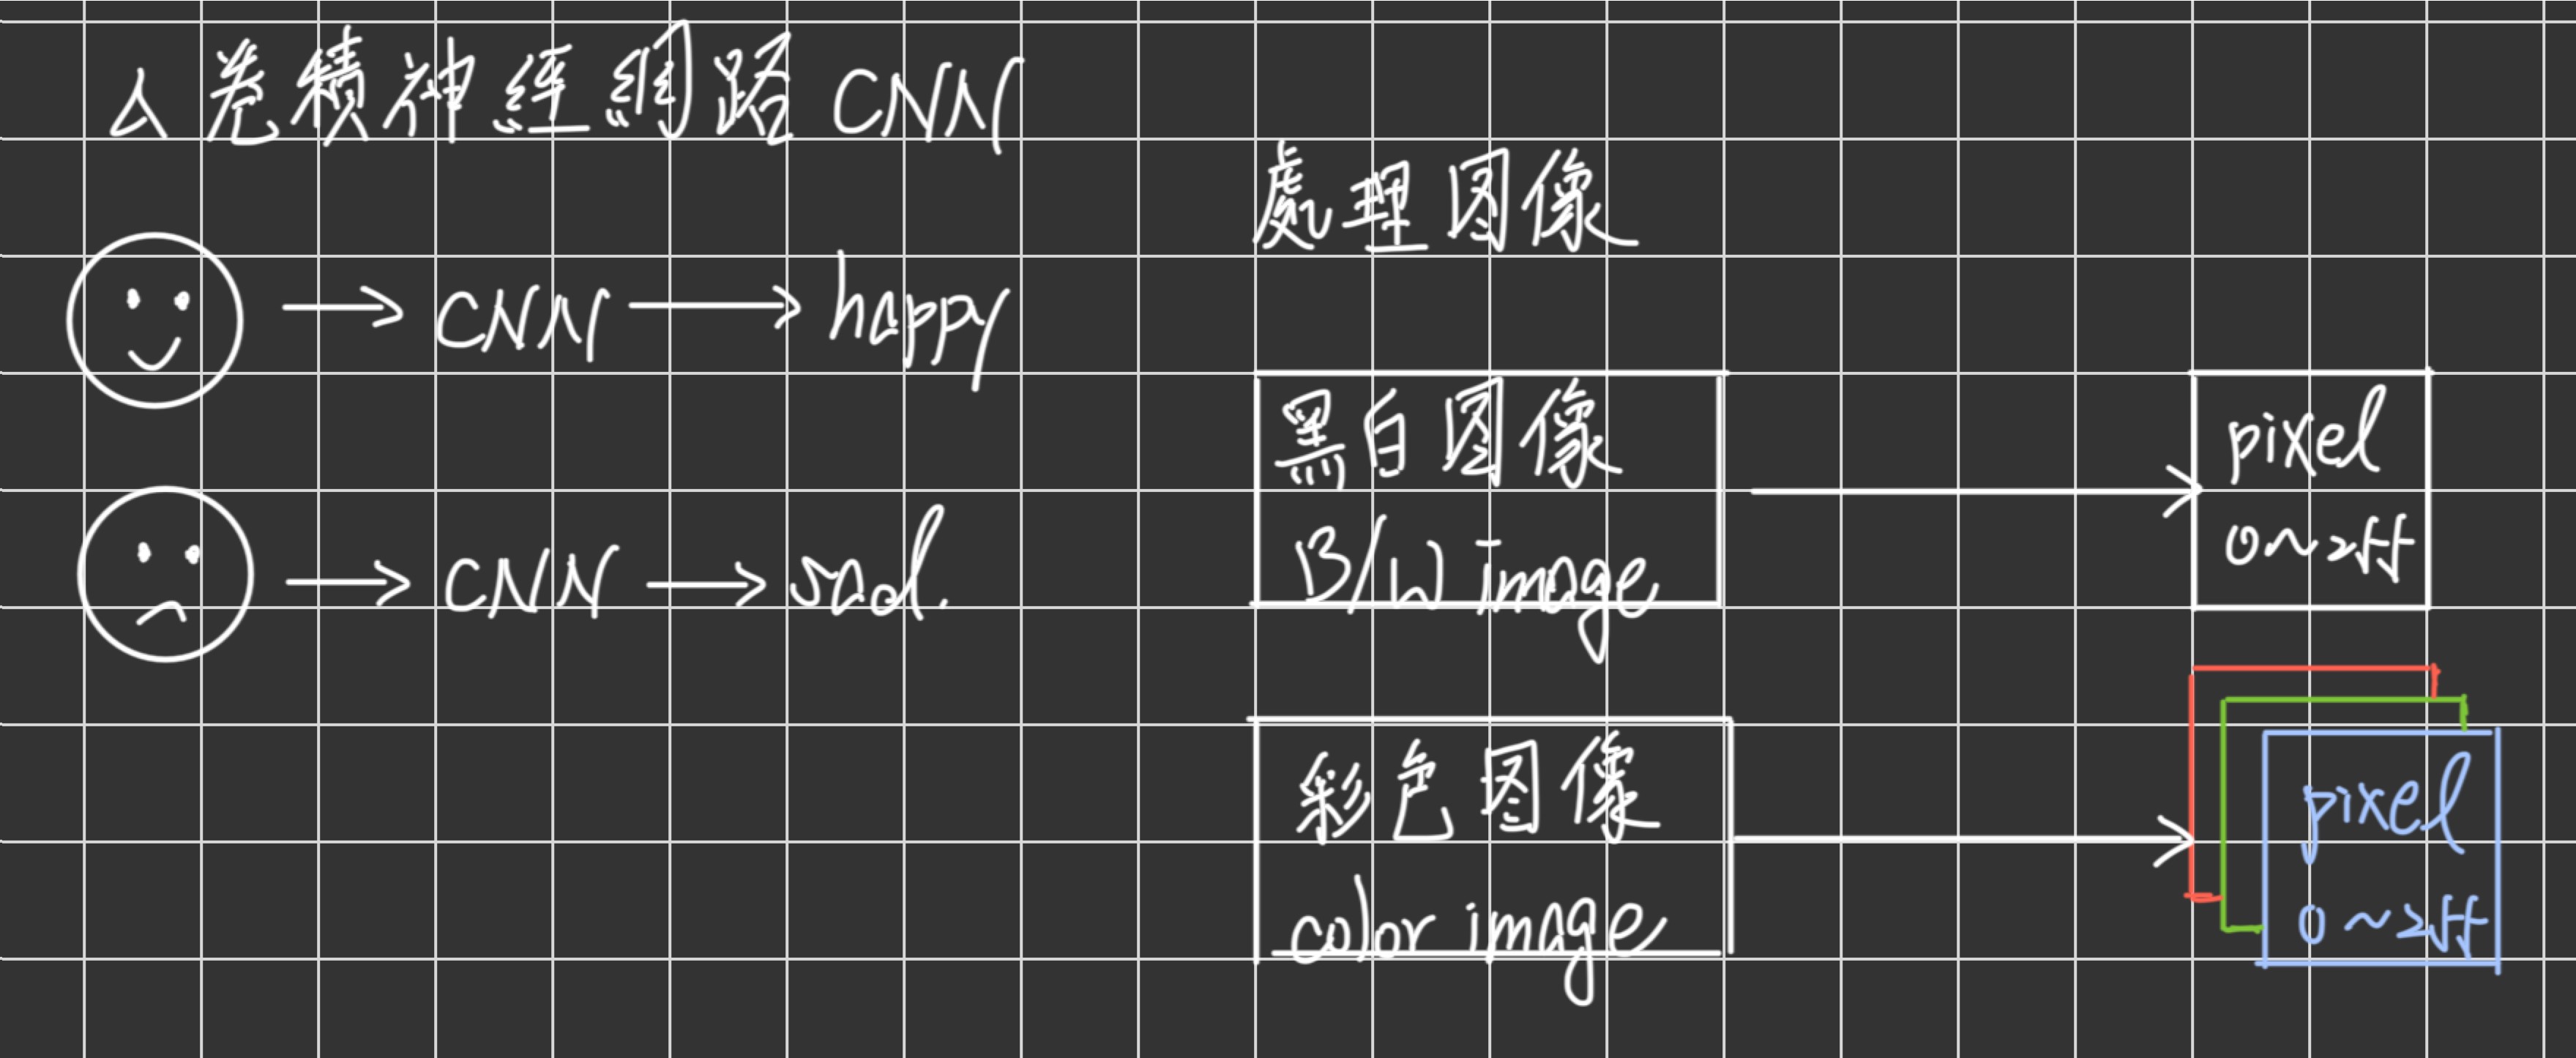 △ 卷積神經網路 CNN
→ CNN → happy
→ CNN → sad.
處理图像
黑白图像
B/W image
pixel
0~255
彩色图像
color image
pixel
0~255